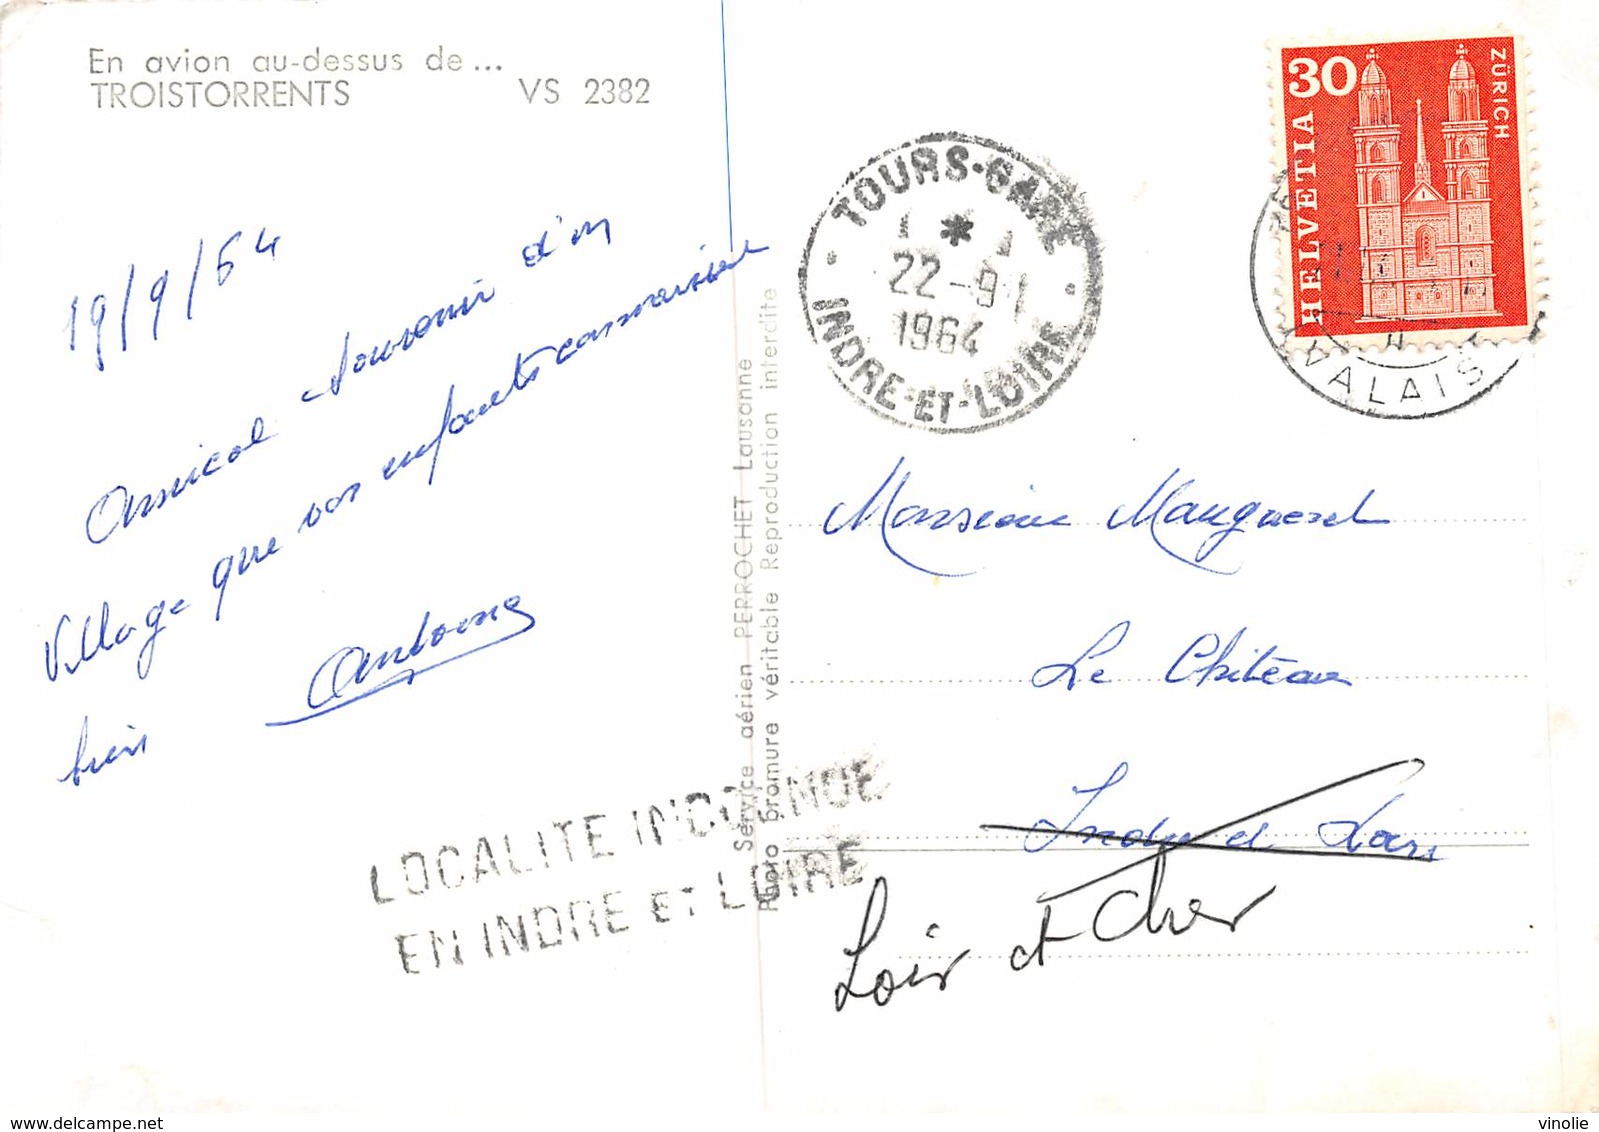 En avion au-dessus de...
TROISTORRENTS VS 2382
19/9/64
Amical souvenir d'un
village que vos enfants connaissent
bien
Antoine
Service aérien PERROCHET Lausanne
Photo bromure véritable Reproduction interdite
30
HELVETIA
ZÜRICH
VALAIS
TOURS-GARE
22-9
1964
INDRE-ET-LOIRE
Monsieur
Le Château
Loir et Cher
LOCALITE INCONNUE
EN INDRE ET LOIRE
vinolie